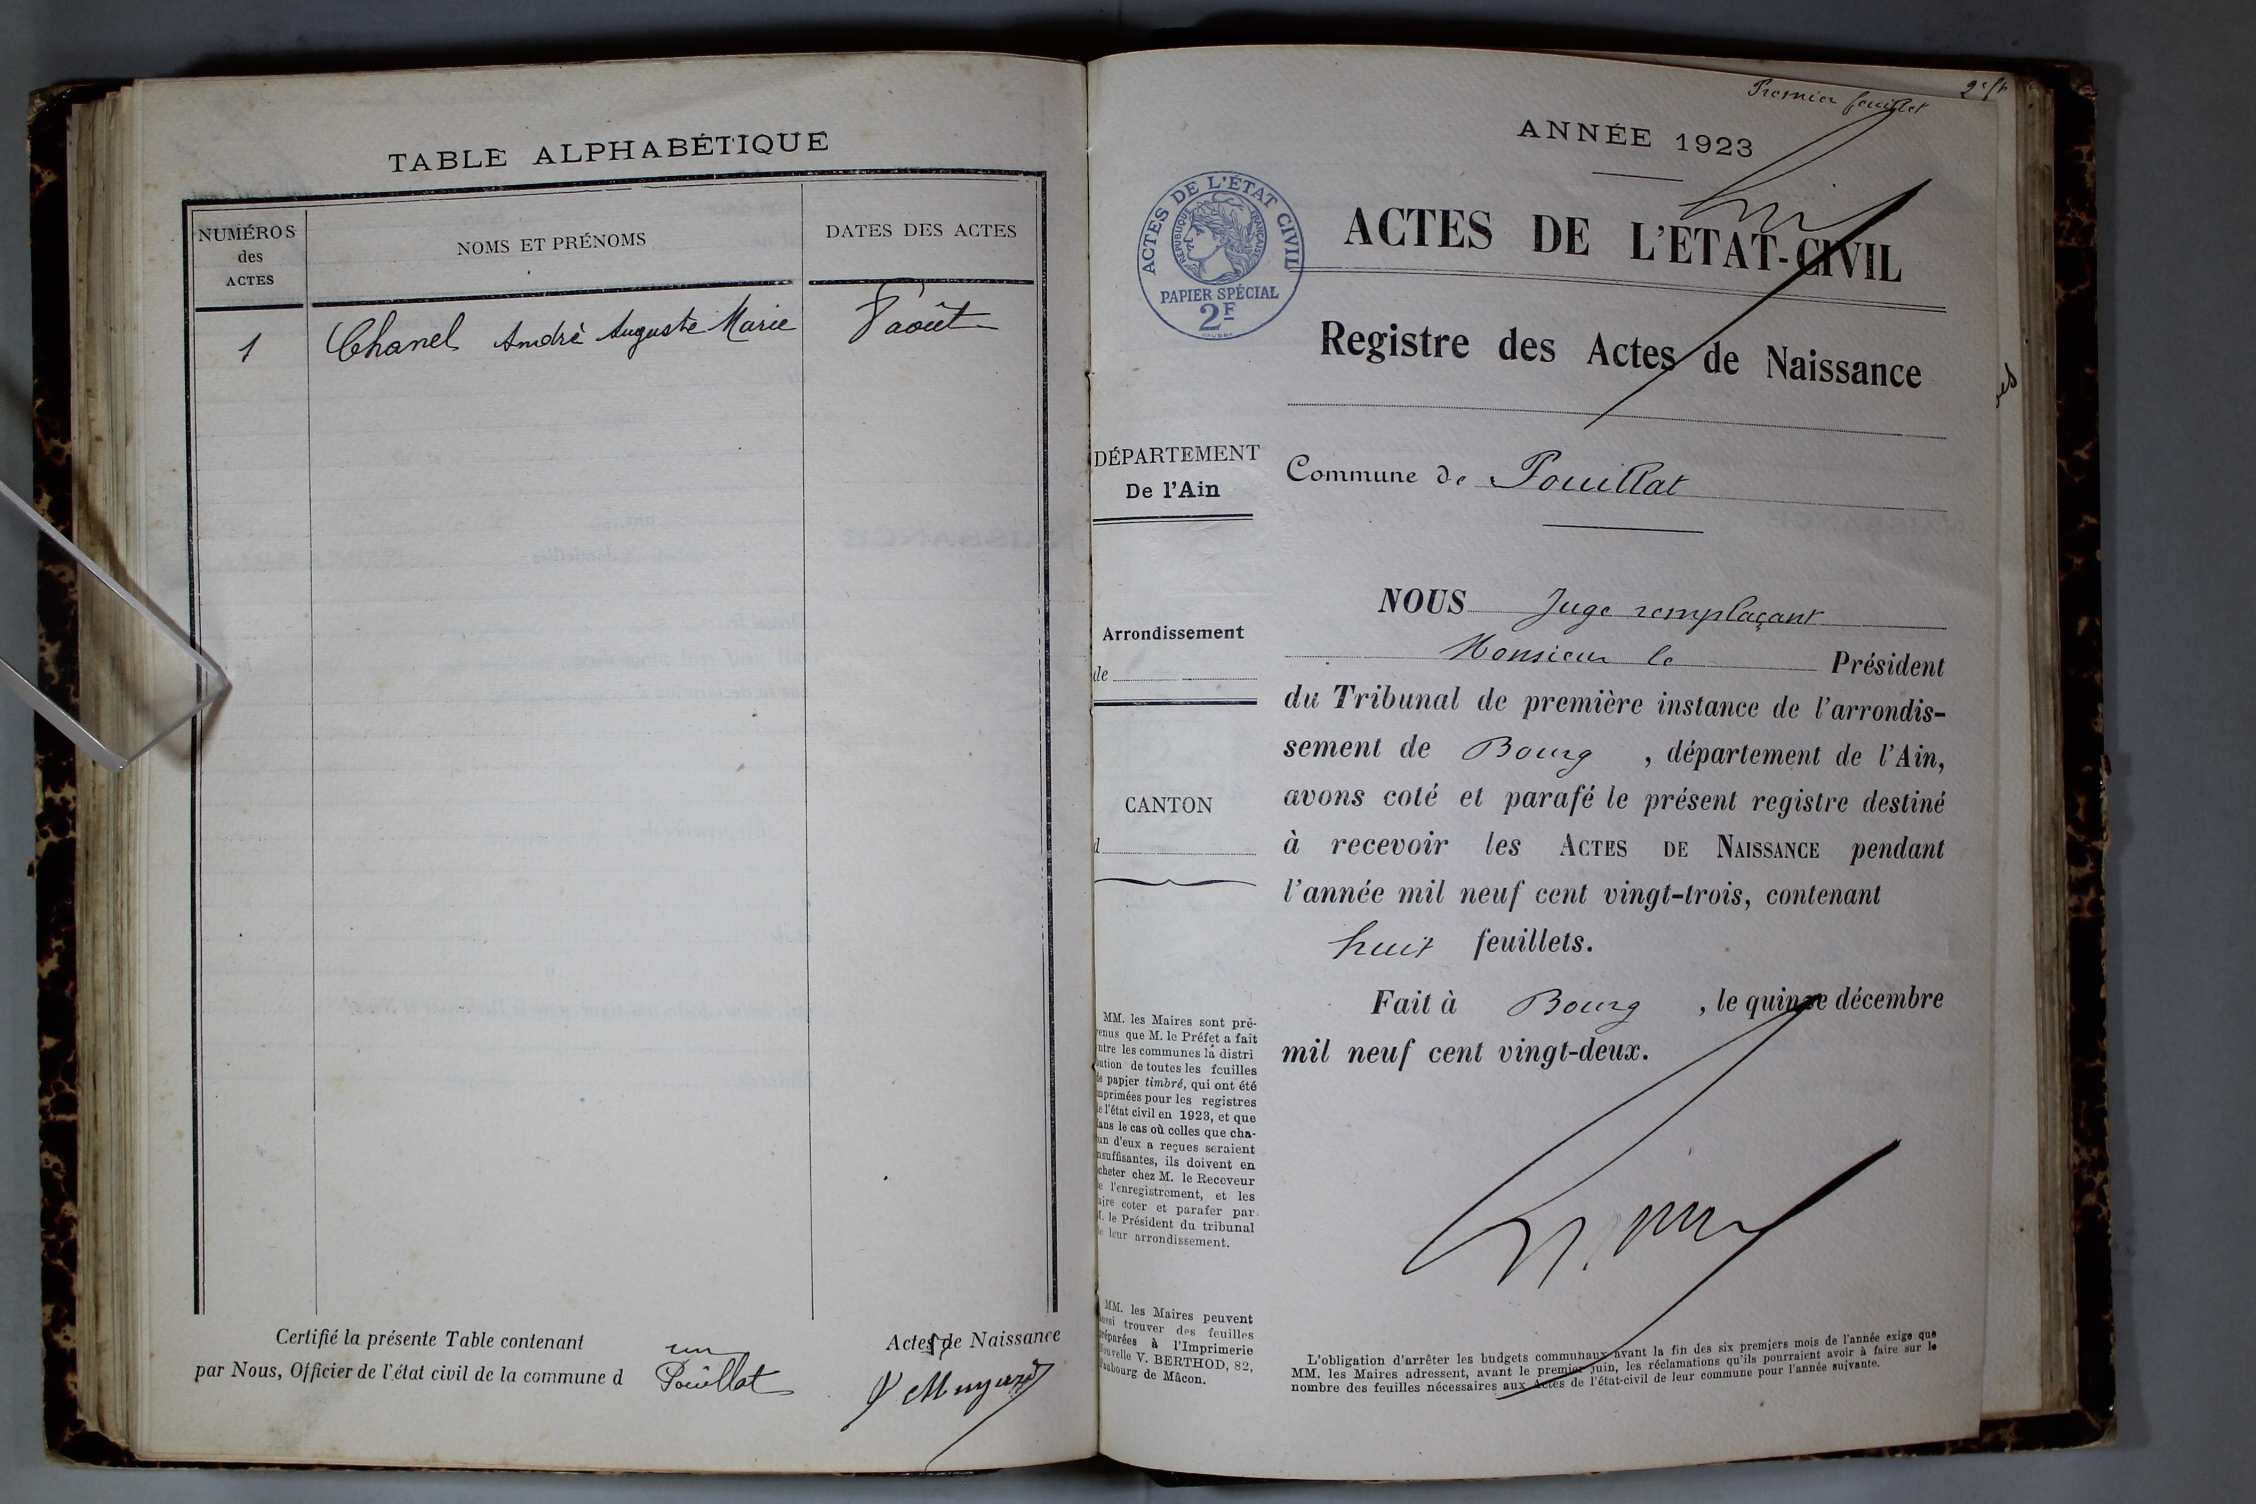 TABLE ALPHABÉTIQUE
NUMÉROS
des
ACTES
NOMS ET PRÉNOMS
DATES DES ACTES
1
Chanel André Auguste Marie
août
Certifié la présente Table contenant
un
Actes de Naissance
par Nous, Officier de l'état civil de la commune d
Pouillat
Premier feuillet
ANNÉE 1923
ACTES DE L'ÉTAT CIVIL
RÉPUBLIQUE FRANÇAISE
PAPIER SPÉCIAL
2F
ACTES DE L'ETAT-CIVIL
Registre des Actes de Naissance
DÉPARTEMENT
De l'Ain
Commune de Pouillat
Arrondissement
de
CANTON
d
NOUS Juge remplaçant
Monsieur le Président
du Tribunal de première instance de l'arrondis-
sement de Bourg , département de l'Ain,
avons coté et parafé le présent registre destiné
à recevoir les ACTES DE NAISSANCE pendant
l'année mil neuf cent vingt-trois, contenant
huit feuillets.
Fait à Bourg , le quinze décembre
mil neuf cent vingt-deux.
MM. les Maires sont pré-
venus que M. le Préfet a fait
entre les communes la distri
bution de toutes les feuilles
de papier timbré, qui ont été
imprimées pour les registres
de l'état civil en 1923, et que
dans le cas où celles que cha-
cun d'eux a reçues seraient
insuffisantes, ils doivent en
acheter chez M. le Receveur
de l'enregistrement, et les
faire coter et parafer par
M. le Président du tribunal
de leur arrondissement.
MM. les Maires peuvent
aussi trouver des feuilles
préparées à l'Imprimerie
Nouvelle V. BERTHOD, 82,
Faubourg de Mâcon.
L'obligation d'arrêter les budgets communaux avant la fin des six premiers mois de l'année exige que
MM. les Maires adressent, avant le premier juin, les réclamations qu'ils pourraient avoir à faire sur le
nombre des feuilles nécessaires aux Actes de l'état-civil de leur commune pour l'année suivante.